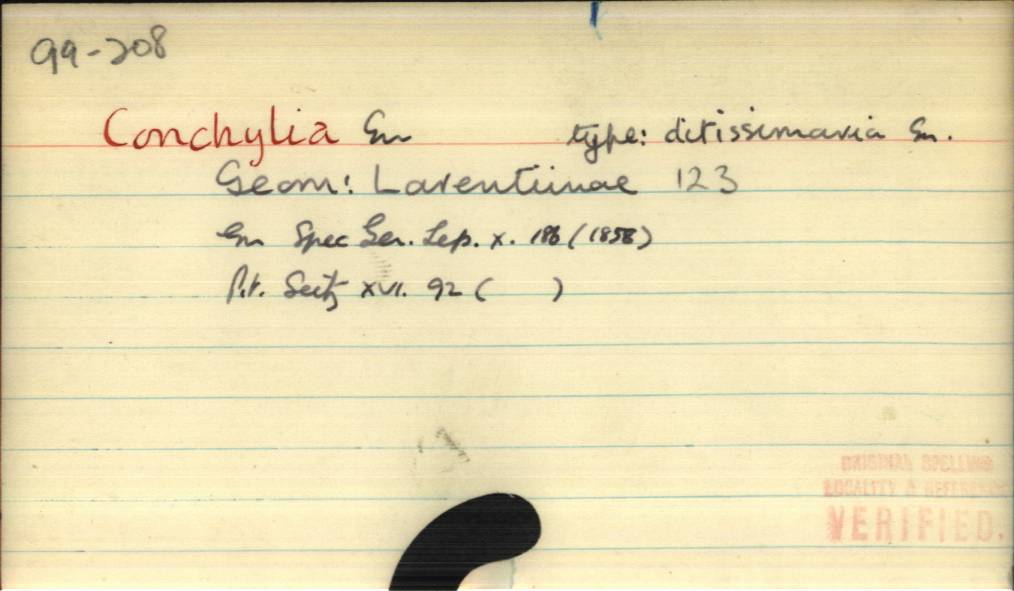 99-208
Conchylia Gn type: ditissimaria Gn.
Geom: Larentiinae 123
Gn Spec Gen. Lep. x. 186 (1858)
Prt. Seitz XVI. 92 ( )
ORIGINAL SPELLING
LOCALITY & REFERENCE
VERIFIED.